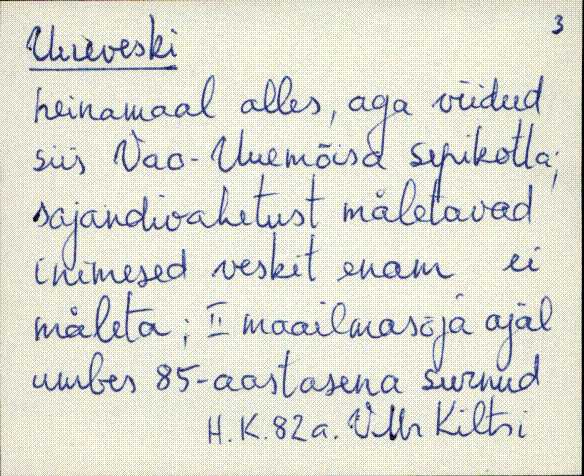 3
Uueveski
heinamaal alles, aga viidud
siis Vao-Uuemõisa sepikotta;
sajandivahetust mäletavad
inimesed veskit enam ei
mäleta; II maailmasõja ajal
umbes 85-aastasena surnud
H.K. 82 a. VMr Kiltsi